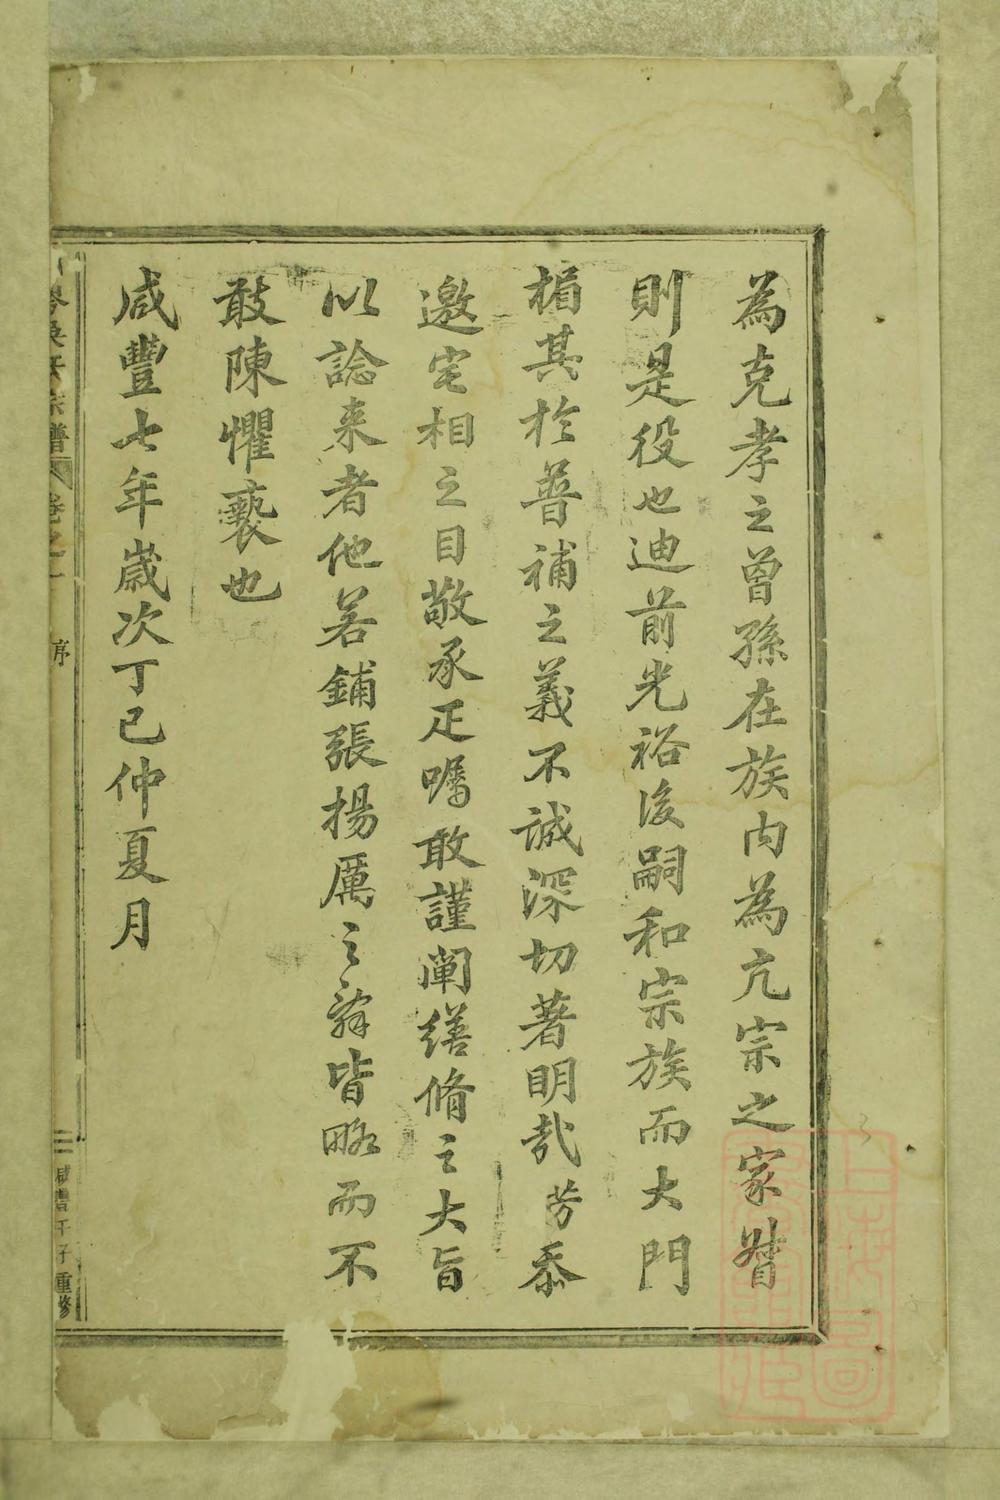 為克孝之曾孫在族内為亢宗之家督
則是役也迪前光裕後嗣和宗族而大門
楣其於普補之義不誠深切著明哉芳忝
邀宅相之目敬承疋囑敢謹闡繕脩之大旨
以諗来者他若鋪張揚厲之辭皆略而不
敢陳懼褻也
咸豐七年嵗次丁巳仲夏月
吳氏宗譜 卷之一 序
重修